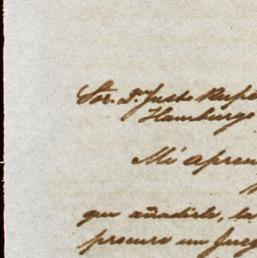 Sor. Dn. Justo Rufi
Hamburgo
Mi aprec
que añadirle, la
procure un jueg